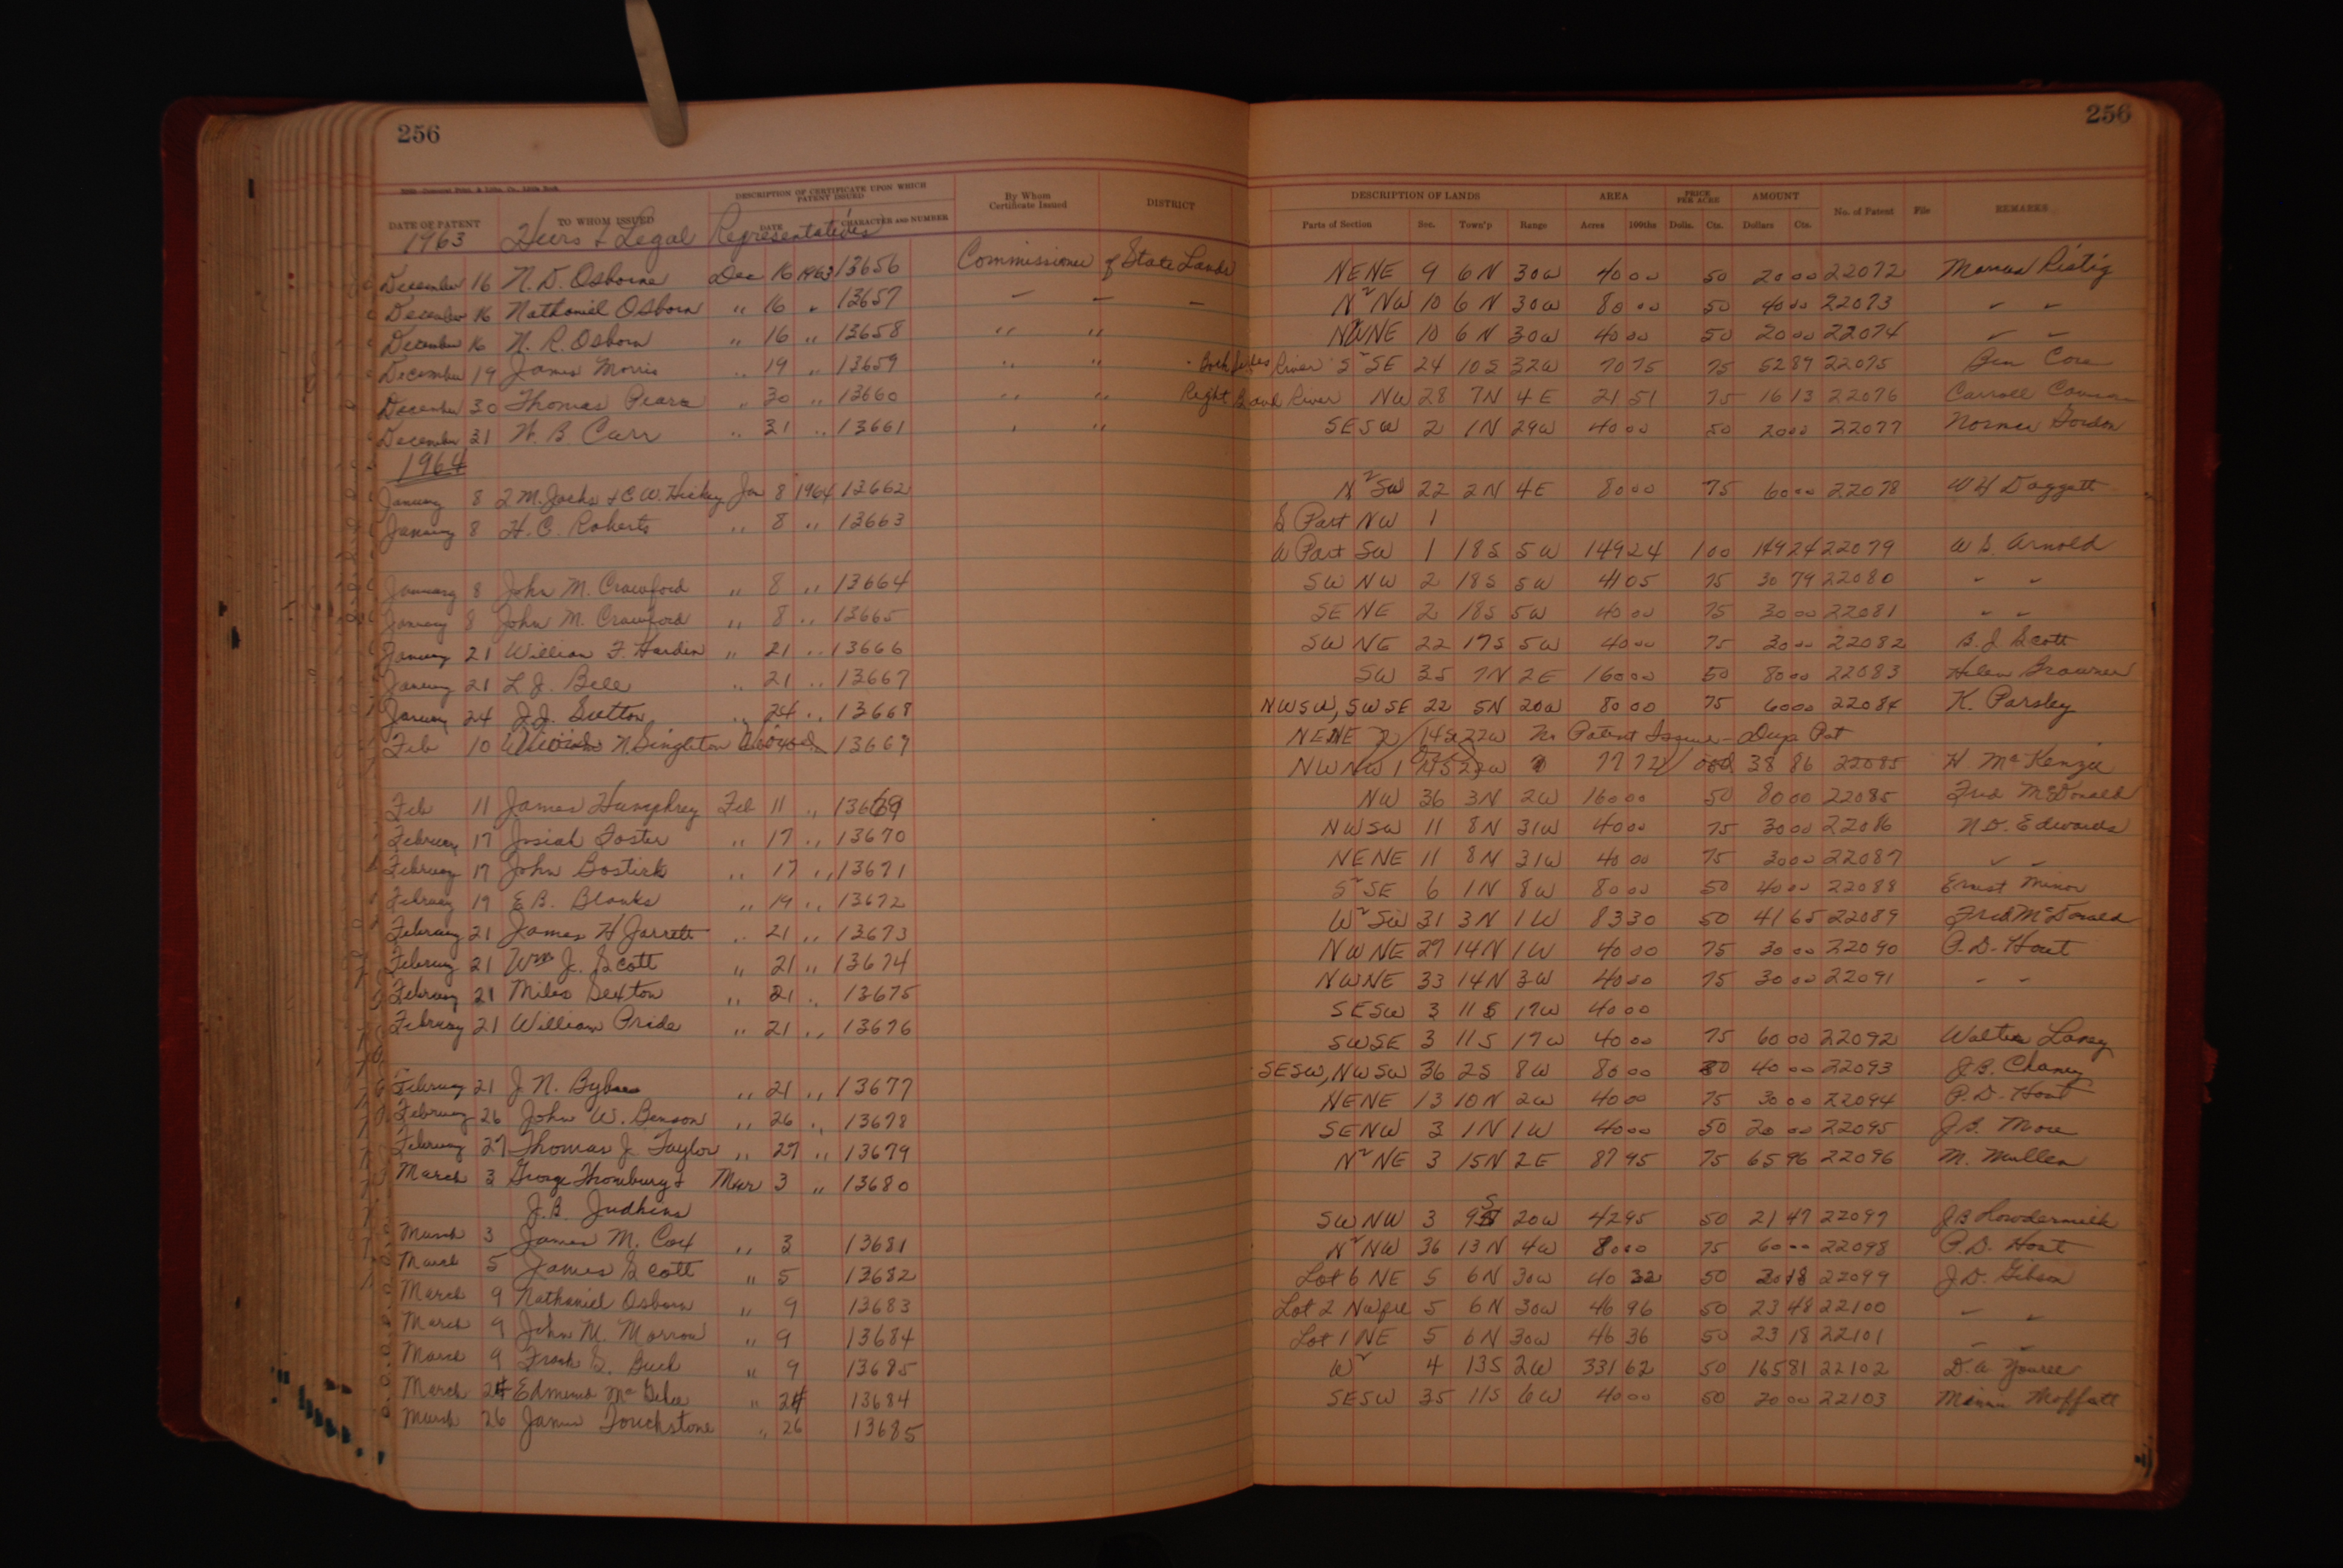 256
256
DATE OF PATENT TO WHOM ISSUED DESCRIPTION OF CERTIFICATE UPON WHICH PATENT ISSUED DATE CHARACTER AND NUMBER By Whom Certificate Issued DISTRICT
DESCRIPTION OF LANDS Parts of Section Sec. Town'p Range AREA Acres 100ths PRICE PER ACRE Dolls. Cts. AMOUNT Dollars Cts. No. of Patent File REMARKS
1963 Heirs & Legal Representatives
December 16 N. D. Osborne Dec 16 1963 13656 Commissioner of State Lands NENE 9 6N 30W 40 00 50 20 00 22072
December 16 Nathaniel Osborn " 16 " 13657 — — — N2 NW 10 6N 30W 80 00 50 40 00 22073 " "
December 16 N. R. Osborn " 16 " 13658 " " NWNE 10 6N 30W 40 00 50 20 00 22074 " "
December 19 James Morris " 19 " 13659 " " Both sides River S2 SE 24 10S 32W 70 75 75 52 89 22075
December 30 Thomas " 30 " 13660 " " Right Bank River NW 28 7N 4E 21 51 75 16 13 22076 Carroll
December 31 W. B. Carr " 31 " 13661 " " SESW 2 1N 29W 40 00 50 20 00 22077 Gordon
1964
January 8 & C. W. Hickey Jan 8 1964 13662 N2 SW 22 2N 4E 80 00 75 60 00 22078 W H Daggett
January 8 H. C. Roberts " 8 " 13663 S Part NW 1
W Part SW 1 18S 5W 149 24 1 00 149 24 22079 W S. Arnold
January 8 John M. Crawford " 8 " 13664 SW NW 2 18S 5W 41 05 75 30 79 22080 " "
January 8 John M. Crawford " 8 " 13665 SE NE 2 18S 5W 40 00 75 30 00 22081 " "
January 21 William F. Hardin " 21 " 13666 SW NE 22 17S 5W 40 00 75 30 00 22082 B. J. Scott
January 21 L. J. Bell " 21 " 13667 SW 35 7N 2E 160 00 50 80 00 22083 Helen
January 24 J. J. Sutton " 24 " 13668 NWSW, SWSE 22 5N 20W 80 00 75 60 00 22084 K. Parsley
Feb 10 N. Singleton 13669 NENE 2 14S 22W No Patent Issued - Dup Pat
NWNW 1 14S 22W 77 72 38 86 22085 H McKenzie
Feb 11 James Humphrey Feb 11 " 13669 NW 36 3N 2W 160 00 50 80 00 22085 Fred McDonald
February 17 Josiah Foster " 17 " 13670 NWSW 11 8N 31W 40 00 75 30 00 22086 N. D. Edwards
February 17 John Bostick " 17 " 13671 NENE 11 8N 31W 40 00 75 30 00 22087 " "
February 19 E. B. Blanks " 19 " 13672 S2 SE 6 1N 8W 80 00 50 40 00 22088 Ernest Minor
February 21 James H Jarrett " 21 " 13673 W2 SW 31 3N 1W 83 30 50 41 65 22089 Fred McDonald
February 21 Wm J. Scott " 21 " 13674 NWNE 29 14N 1W 40 00 75 30 00 22090 P. D. Hout
February 21 Miles Sexton " 21 " 13675 NWNE 33 14N 3W 40 00 75 30 00 22091 " "
February 21 William Pride " 21 " 13676 SESW 3 11S 17W 40 00
SWSE 3 11S 17W 40 00 75 60 00 22092 Walter Laney
February 21 J. N. " 21 " 13677 SESW, NWSW 36 2S 8W 80 00 50 40 00 22093 J. B. Chaney
February 26 John W. Benson " 26 " 13678 NENE 13 10N 2W 40 00 75 30 00 22094 P. D. Hout
February 27 Thomas J. Taylor " 27 " 13679 SENW 3 1N 1W 40 00 50 20 00 22095 J. B. More
March 3 George Thornburg & Mar 3 " 13680 N2 NE 3 15N 2E 87 95 75 65 96 22096 M. Mullen
J. B. Judkins
March 3 James M. Cox " 3 13681 SWNW 3 9S 20W 42 95 50 21 47 22097 J B Lowdermilk
March 5 James Scott " 5 13682 N2 NW 36 13N 4W 80 00 75 60 00 22098 P. D. Hout
March 9 Nathaniel Osborn " 9 13683 Lot 6 NE 5 6N 30W 40 32 50 20 18 22099 J. D. Gibson
March 9 John M. Morrow " 9 13684 Lot 2 NWfrl 5 6N 30W 46 96 50 23 48 22100 " "
March 9 Frank S. " 9 13685 Lot 1 NE 5 6N 30W 46 36 50 23 18 22101 " "
March 24 Edmund McGehee " 24 13684 W2 4 13S 2W 331 62 50 165 81 22102 D. A.
March 26 James Touchstone " 26 13685 SESW 35 11S 6W 40 00 50 20 00 22103 Moffatt